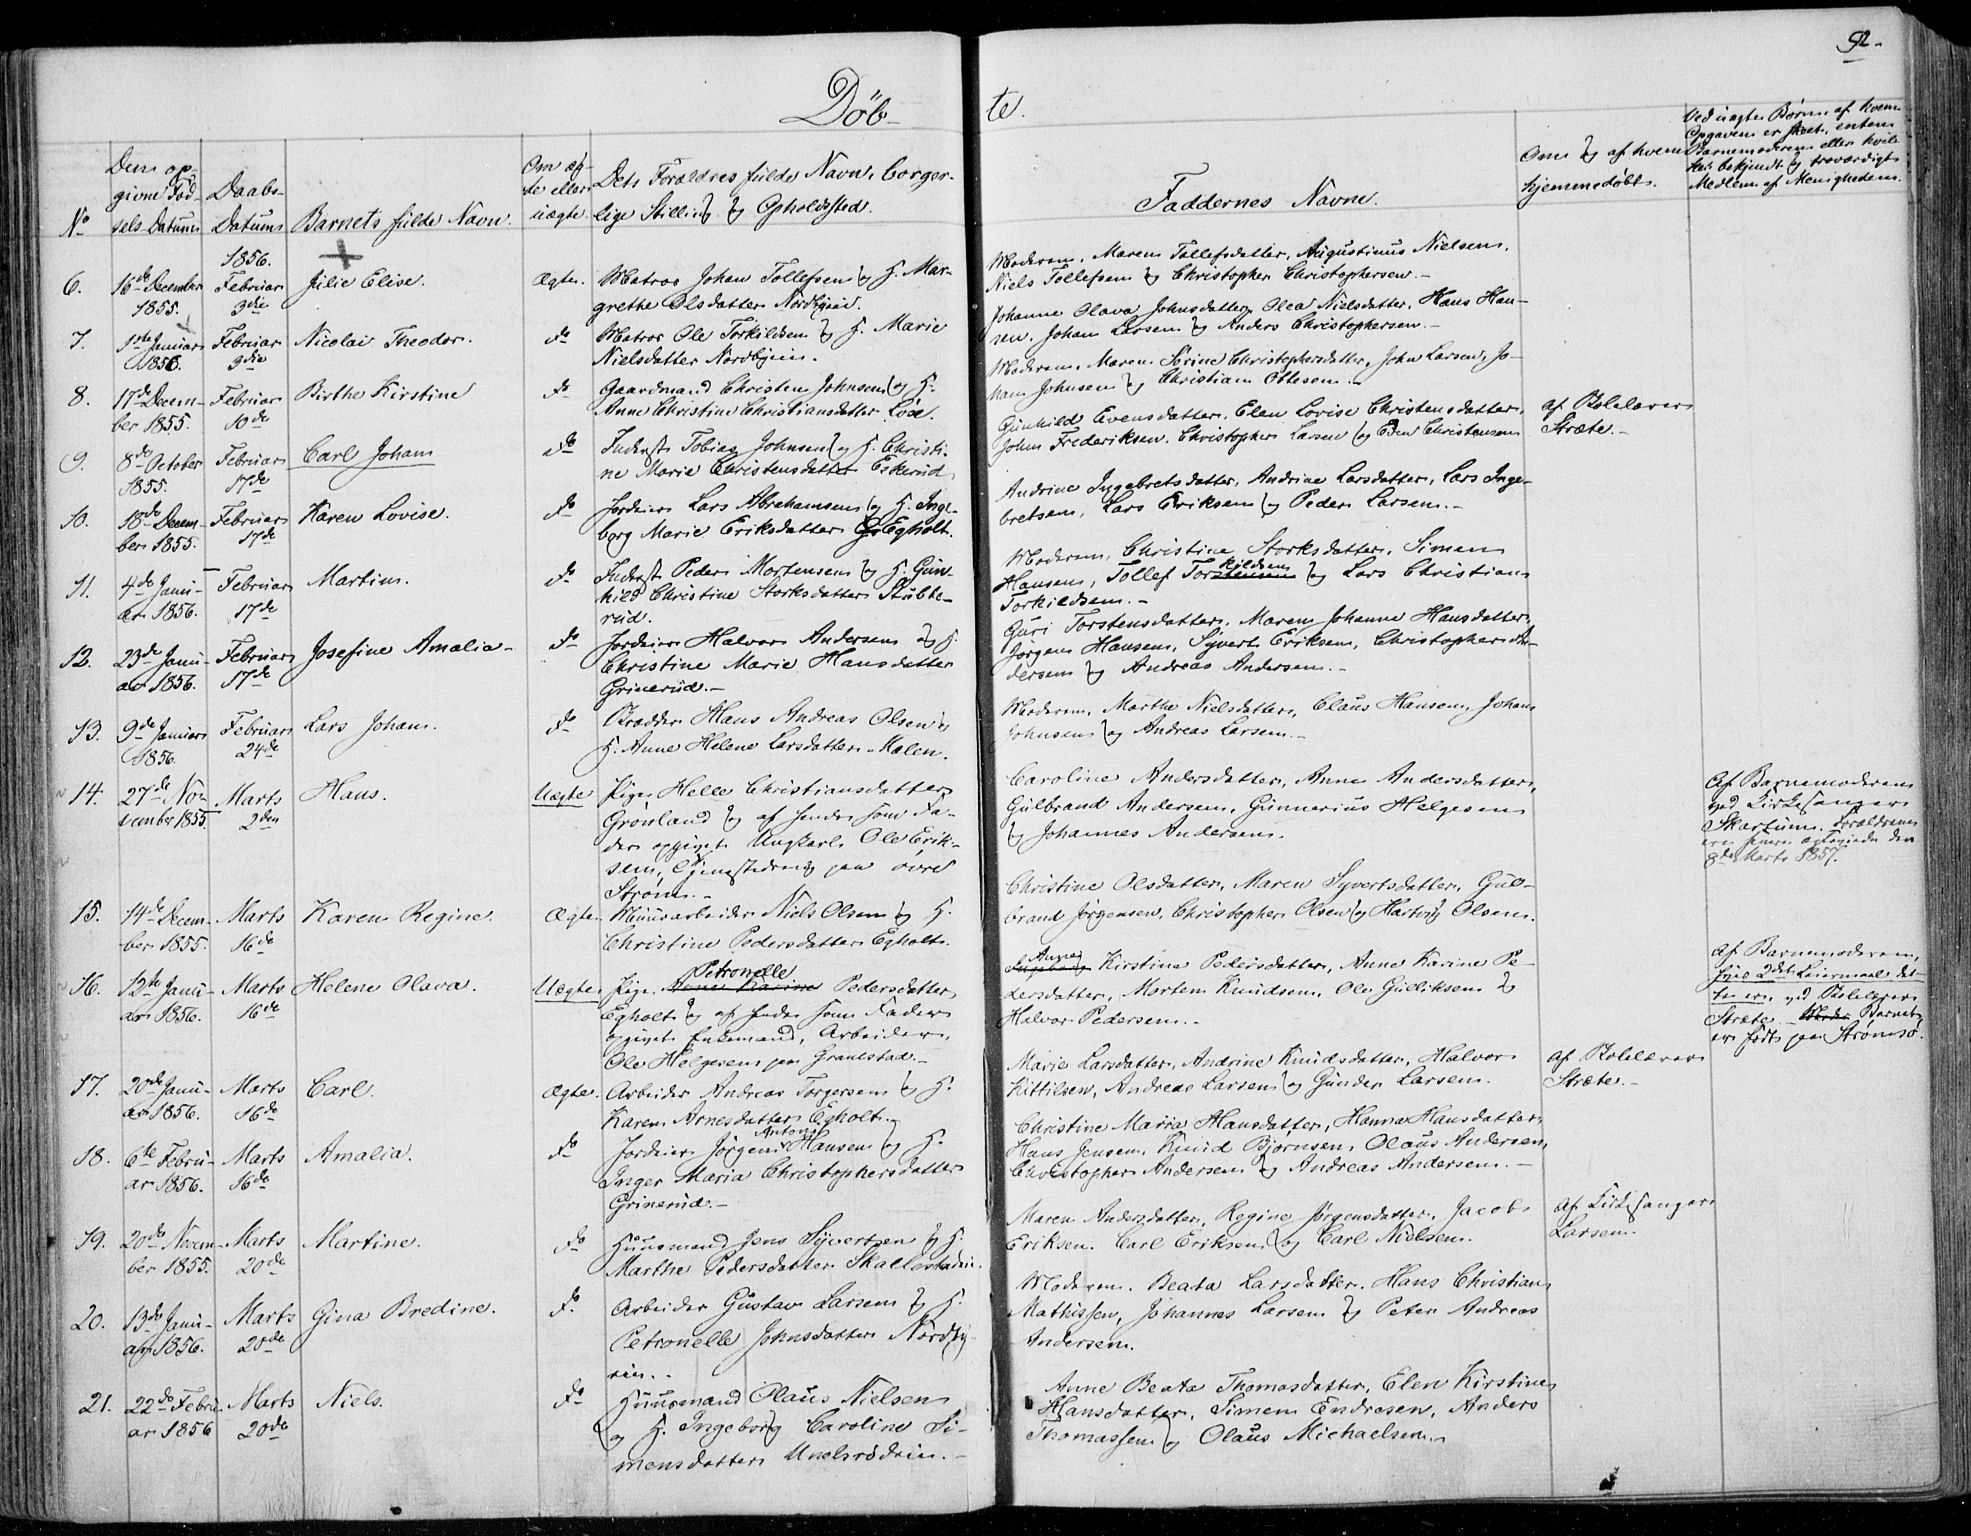 92.
Döb-
te.
No
Den op-
givne Fød
sels Datum
Daabs-
Datum
Barnets fulde Navn.
Om æg-
te eller
uægte.
Dets Forældres fulde Navn, borger-
lige Stilling og Opholdssted.
Faddernes Navne.
Om og af hvem
hjemmedöbt.
Ved uægte Børn af hvem
Opgaven er skeet, enten
Barnemoderen eller hvil-
ket bekjendt og troværdigt
Medlem af Menigheden.
1856.
6.
16de December
1855.
Februar
3die
Julie Elise.
Ægte.
Matros Johan Tollefsen og H. Mar-
grethe Olsdatter Nordbyeie.
Moderen, Maren Tollefsdatter, Augustinus Nielsen,
Niels Tollefsen og Christopher Christophersen.-
7.
1ste Januar
1856.
Februar
3die
Nicolai Theodor.
do
Matros Ole Torkildsen og H. Marie
Nielsdatter Nordbyeie.
Johanne Olava Johnsdatter, Olea Nielsdatter, Hans Han-
sen, Johan Larsen og Anders Christophersen.-
8.
17de Decem-
ber 1855.
Februar
10de
Birthe Kirstine
do
Gaardmand Christen Johnsen og H.
Anne Christine Christiansdatter Löse.
Moderen, Maren Sörine Christophersdatter, John Larsen, Jo-
han Johnsen og Christian Ottesen.-
9.
8de October
1855.
Februar
17de
Carl Johan
do
Inderst Tobias Johnsen og H. Christi-
ne Marie Christensdatter Eskerud
Gunhild Evensdatter, Elen Lovise Christensdatter,
John Frederiksen, Christopher Larsen og Even Christensen
af Skolelærer
Stræte.-
10.
18de Decem-
ber 1855.
Februar
17de
Karen Lovise.
do
Jordeier Lars Abrahamsen og H. Inge-
borg Marie Eriksdatter Egholt.
Andrine Ingebretsdatter, Andrine Larsdatter, Lars Inge-
bretsen, Lars Eriksen og Peder Larsen.-
11.
4de Janu-
ar 1856.
Februar
17de
Martin.
do
Inderst Peder Mortensen og H. Gun-
hild Christine Storksdatter Stubbe-
rud.
Moderen, Christine Storksdatter, Simen
Hansen, Tollef Torkildsen og Lars Christian
Torkildsen.-
12.
23de Janu-
ar 1856.
Februar
17de
Josefine Amalia-
do
Jordeier Halvor Andersen og H.
Christine Marie Hansdatter
Grinerud.-
Guri Torstensdatter, Maren Johanne Hansdatter,
Jørgen Hansen, Syvert Eriksen, Christopher An-
dersen og Andreas Andersen.-
13.
9de Januar
1856.
Februar
24de
Lars Johan.
do
Brødder Hans Andreas Olsen og
H. Anne Helene Larsdatter Malen.
Moderen, Marthe Nielsdatter, Claus Hansen, Johan
Johnsen og Andreas Larsen.-
14.
27de No-
vember 1855.
Marts
2den
Hans.
Uægte
Pige Helle Christiansdatter
Grönland og af hende som Fa-
der opgivet Ungkarl Ole Erik-
sen, tjenestedreng paa övre
Ström.-
Caroline Andersdatter, Anne Andersdatter,
Gulbrand Andersen, Gunnerius Helgesen
og Johannes Andersen.
Af Barnemoderen
ved Kirkesanger
Skartum. Forældrene
ere senere ægteviede den
8de Marts 1857.
15.
14de Decem-
ber 1855.
Marts
16de
Karen Regine.
Ægte.
Muusarbeider Niels Olsen og H.
Christine Pedersdatter Egholt.
Christine Olsdatter, Maren Syvertsdatter, Gul-
brand Jørgensen, Christopher Olsen og Hartvig Olsen.
16.
12te Janu-
ar 1856.
Marts
16de
Helene Olava.
Uægte.
Petronelle
Pige Anne Karine Pedersdatter
Egholt og af hende som Fader
opgivet Enkemand, Arbeider
Ole Helgesen paa Gravlstad.-
Anne
Ingeborg Kirstine Pedersdatter, Anne Karine Pe-
dersdatter, Morten Knudsen, Ole Gulliksen og
Halvor Pedersen.-
Af Barnemoderen,
hvis 2det Leiermaal det-
te er, ved Skolelærer
Stræte.- Barnet
er födt paa Strömsö.
17.
20de Janu-
ar 1856.
Marts
16de
Carl.
Ægte.
Arbeider Andreas Torgersen og H.
Karen Arnesdatter Egholt.
Marie Larsdatter, Andrine Knudsdatter, Halvor
Kittilsen, Andreas Larsen og Gunder Larsen.
af Skolelærer
Stræte.-
18.
6te Febru-
ar 1856.
Marts
16de
Amalia.
do
Anton
Jordeier Jørgen Hansen og H.
Inger Maria Christophersdatter
Grinerud.-
Christine Maria Hansdatter, Hanna Hansdatter,
Hans Jensen, Knud Bjørnsen, Olaus Andersen,
Christopher Andersen og Andreas Andersen.-
19.
20de Novem-
ber 1855.
Marts
20de
Martine.
do
Huusmand Jens Syvertsen og H.
Marthe Pedersdatter Skallestadeie.
Maren Andersdatter, Regine Jørgensdatter, Jacob
Eriksen, Carl Eriksen og Carl Nielsen.
af Kirkesanger
Larsen.
20.
13de Janu-
ar 1856.
Marts
20de
Gina Bredine.
do
Arbeider Gustav Larsen og H.
Petronelle Johnsdatter Nordby-
eie.-
Moderen, Beata Larsdatter, Hans Christian
Mathissen, Johannes Larsen og Peter Andreas
Andersen.
21.
22de Febru-
ar 1856
Marts
20de
Niels.
do
Huusmand Olaus Nielsen
og H. Ingeborg Caroline Si-
mensdatter Unelsrödeie.-
Anne Beata Thomasdatter, Elen Kirstine
Hansdatter, Simen Endresen, Anders
Thomassen og Olaus Michaelsen.